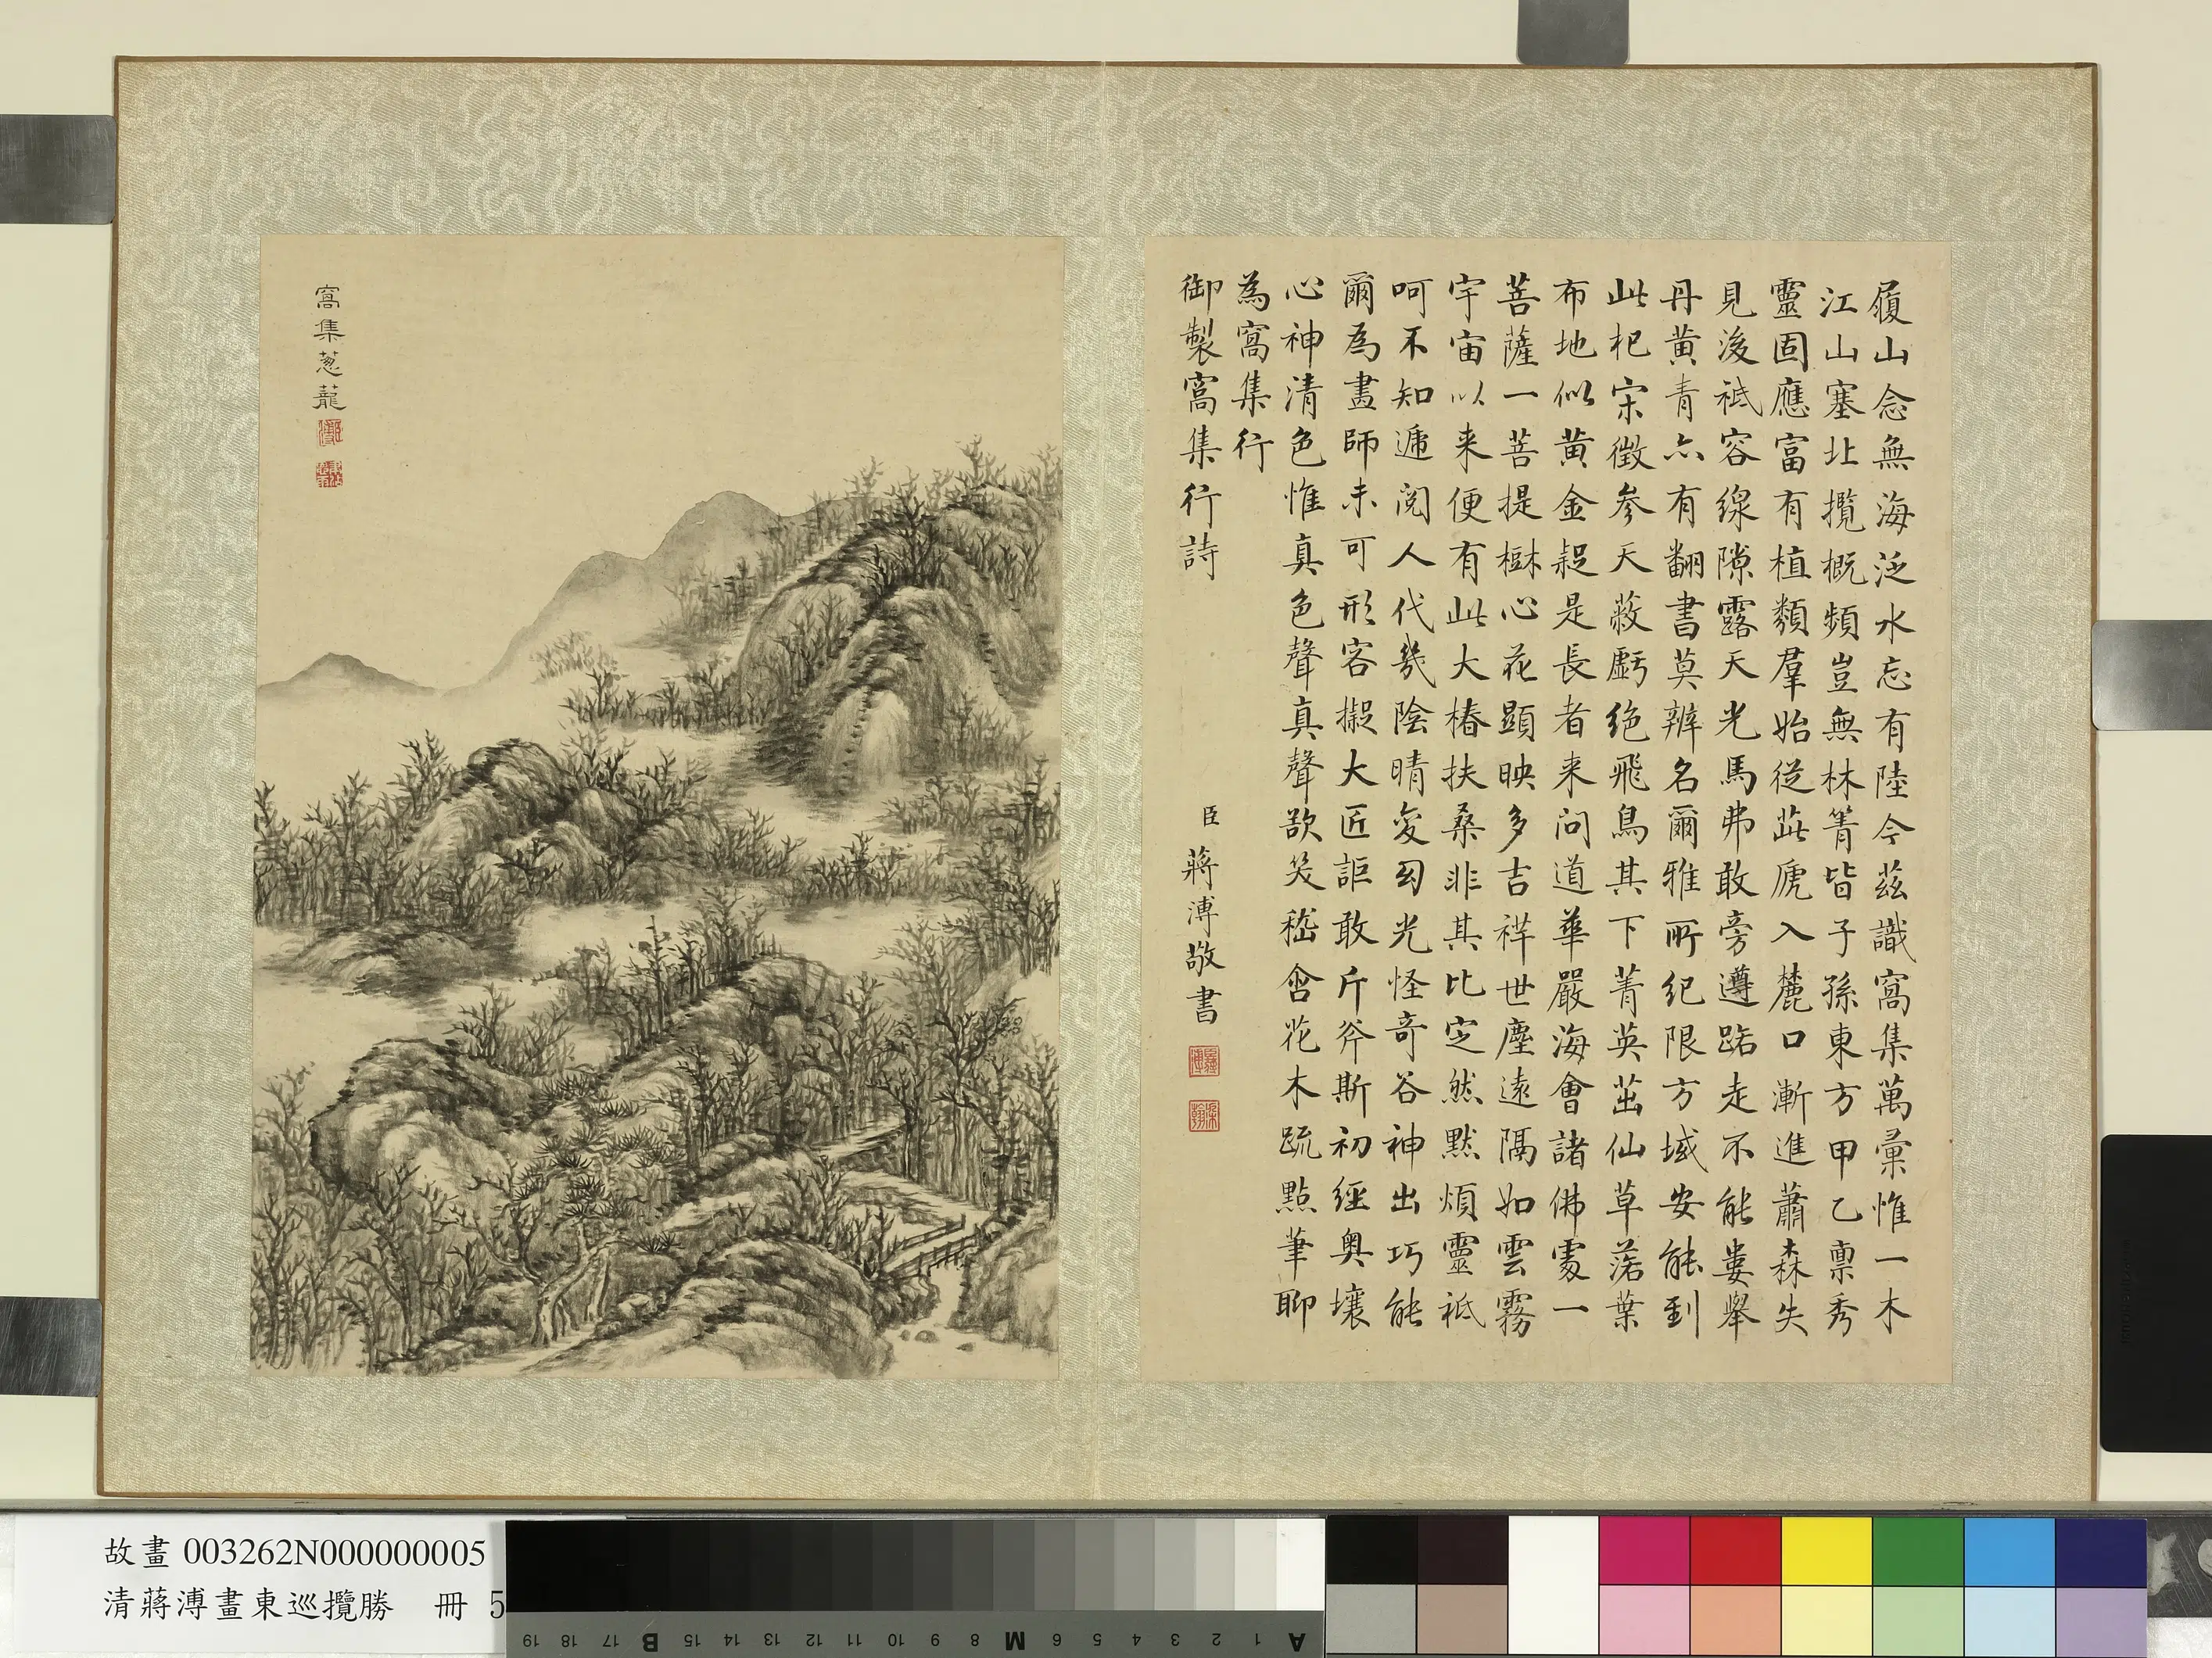 履山念無海泛水忘有陸今茲識窩集萬彙惟一木
江山塞北攬概頻豈無林箐皆子孫東方甲乙稟秀
靈固應富有植類羣始從茲虒入麓口漸進蕭森失
見後祗容線隙露天光馬弗敢旁遵踣走不能婁舉
丹黃青亦有翻書莫辨名爾雅所紀限方域安能到
此杞宋徵參天蔽虧絕飛鳥其下菁英茁仙草落葉
布地似黃金疑是長者来問道華嚴海會諸佛處一
菩薩一菩提樹心花顯映多吉祥世塵遠隔如雲霧
宇宙以来便有此大椿扶桑非其比定然默煩靈祗
呵不知遞閱人代幾陰晴變幻光怪奇谷神出巧能
爾為畫師未可形容擬大匠詎敢斤斧斯初經奧壤
心神清色惟真色聲真聲欲笑嵇含花木疏點筆聊
為窩集行
御製窩集行詩
臣蔣溥敬書
窩集蔥蘢
故畫 003262N000000005
清蔣溥畫東巡攬勝 冊 5
A 1 2 3 4 5 6 M 8 9 10 11 12 13 14 15 B 17 18 19